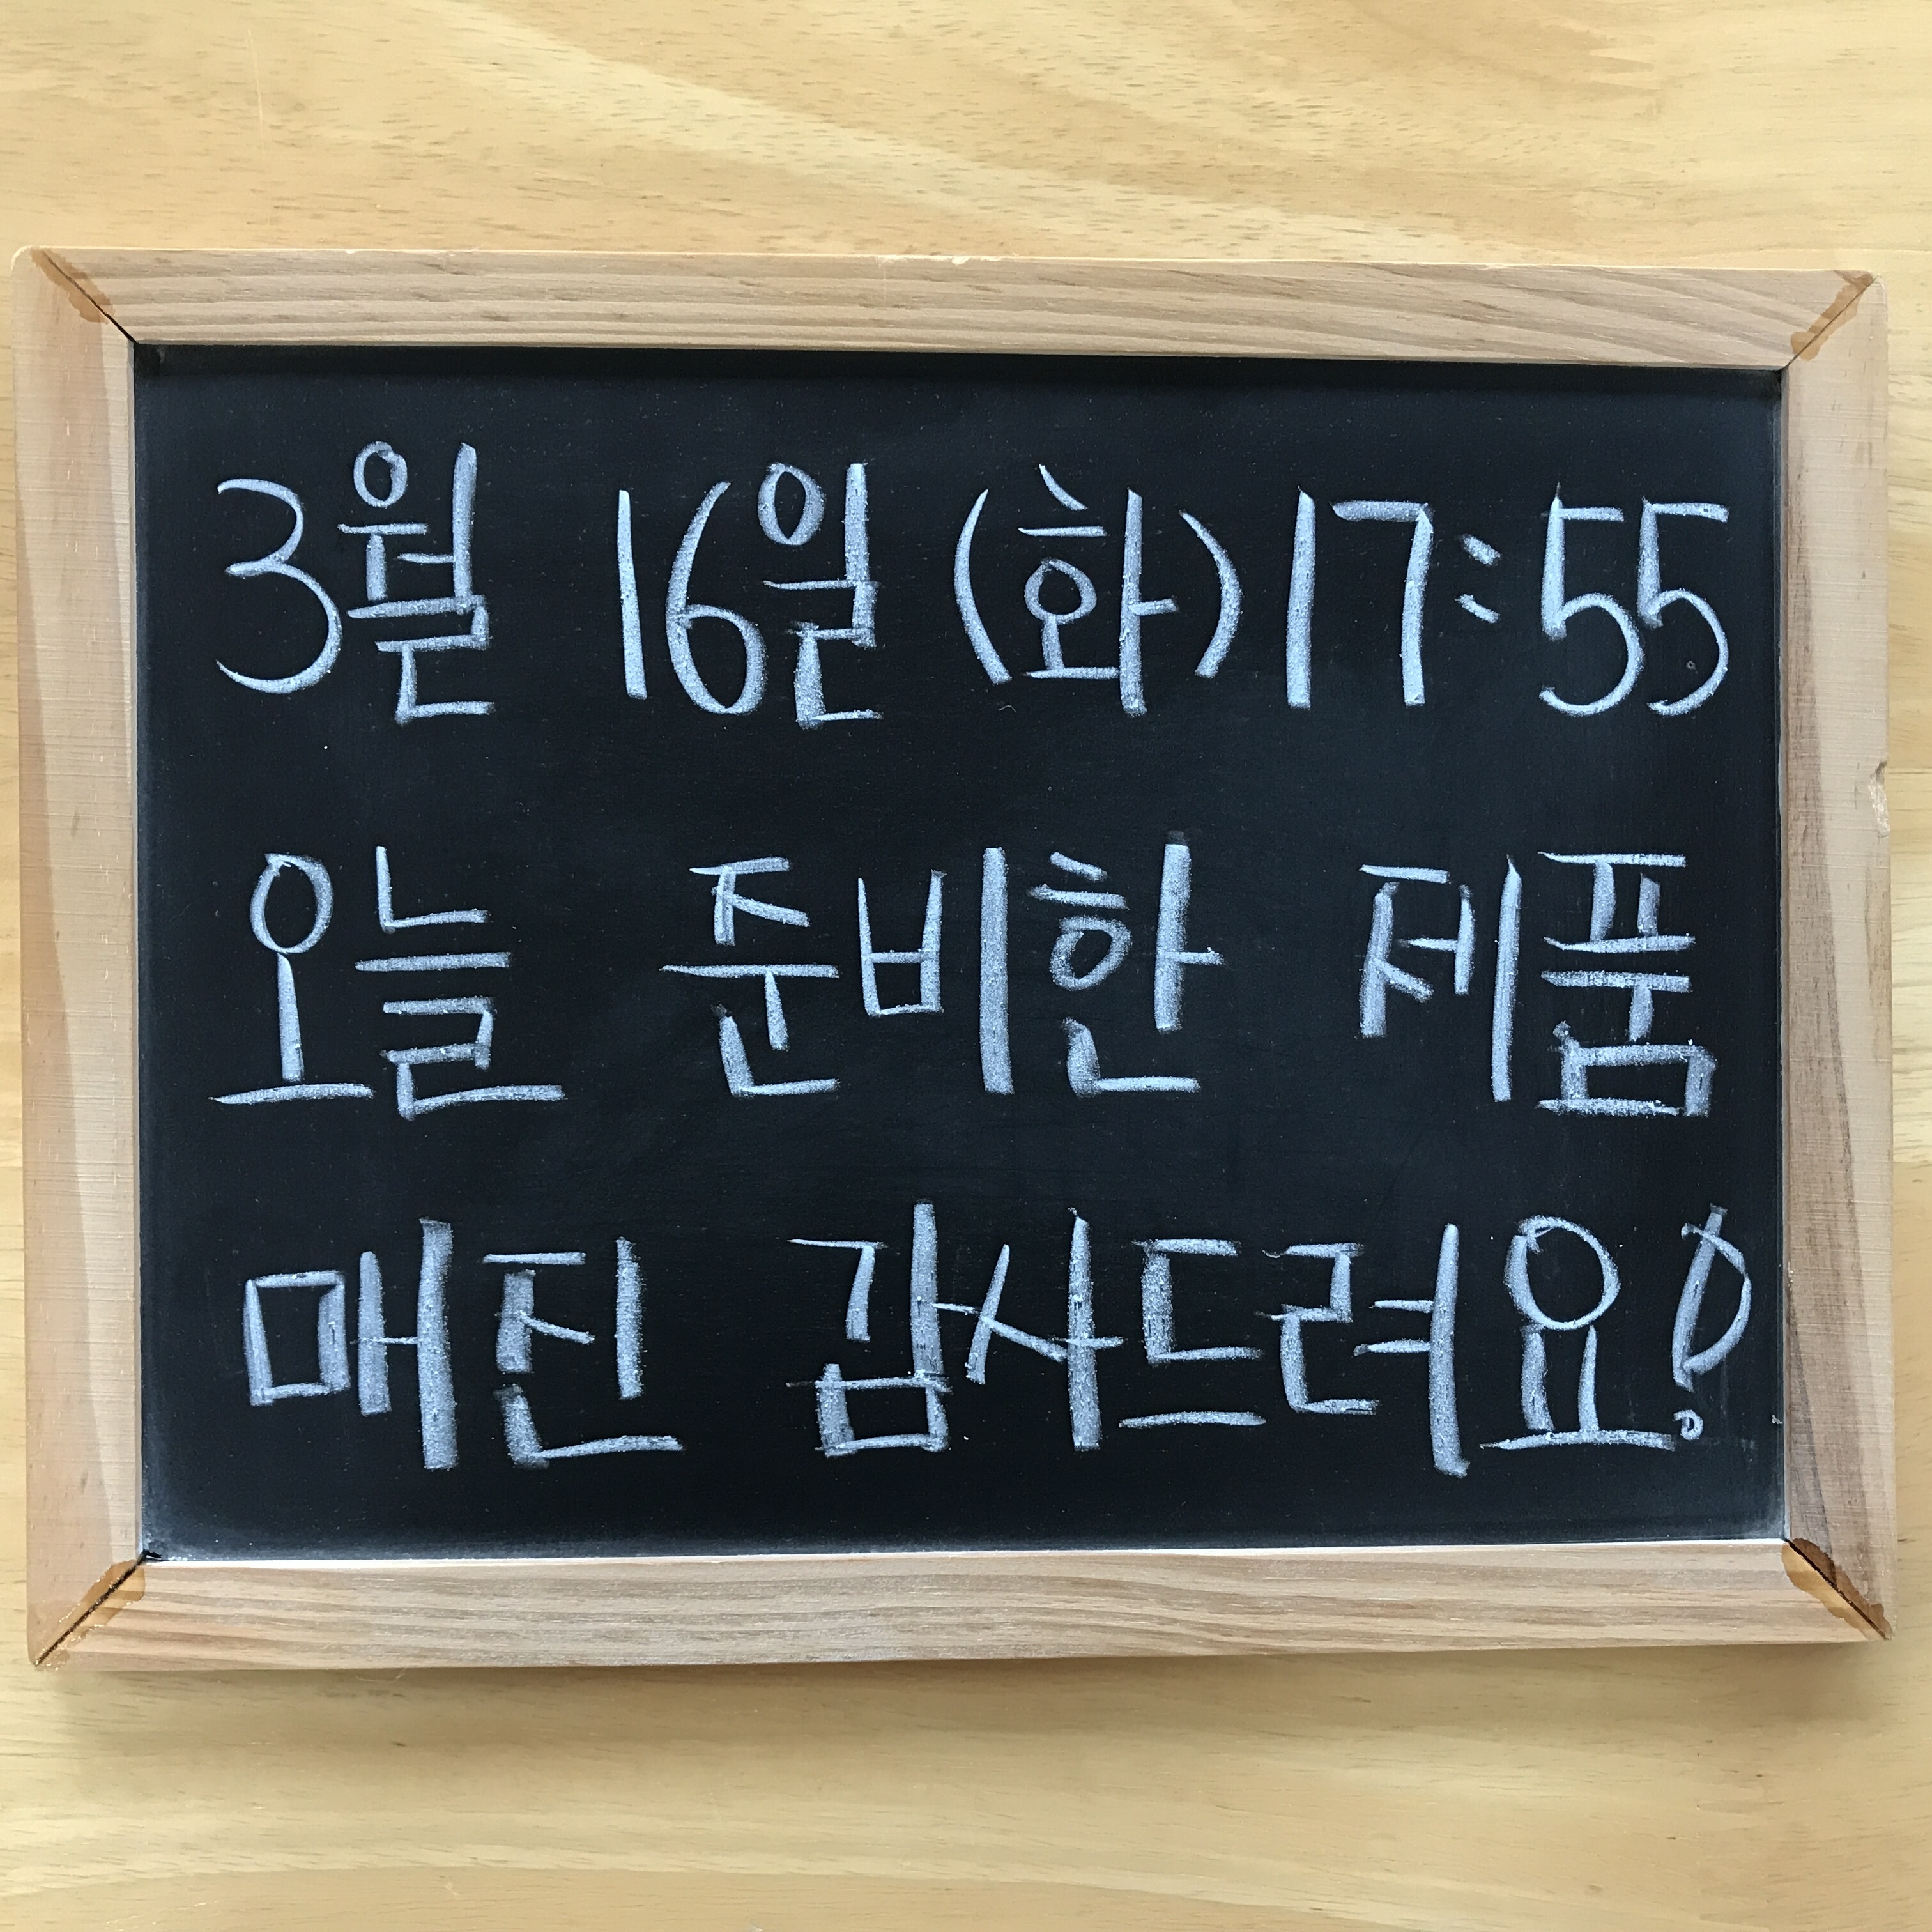 3월 16일 (화) 17:55
오늘 준비한 제품
매진 감사드려요!